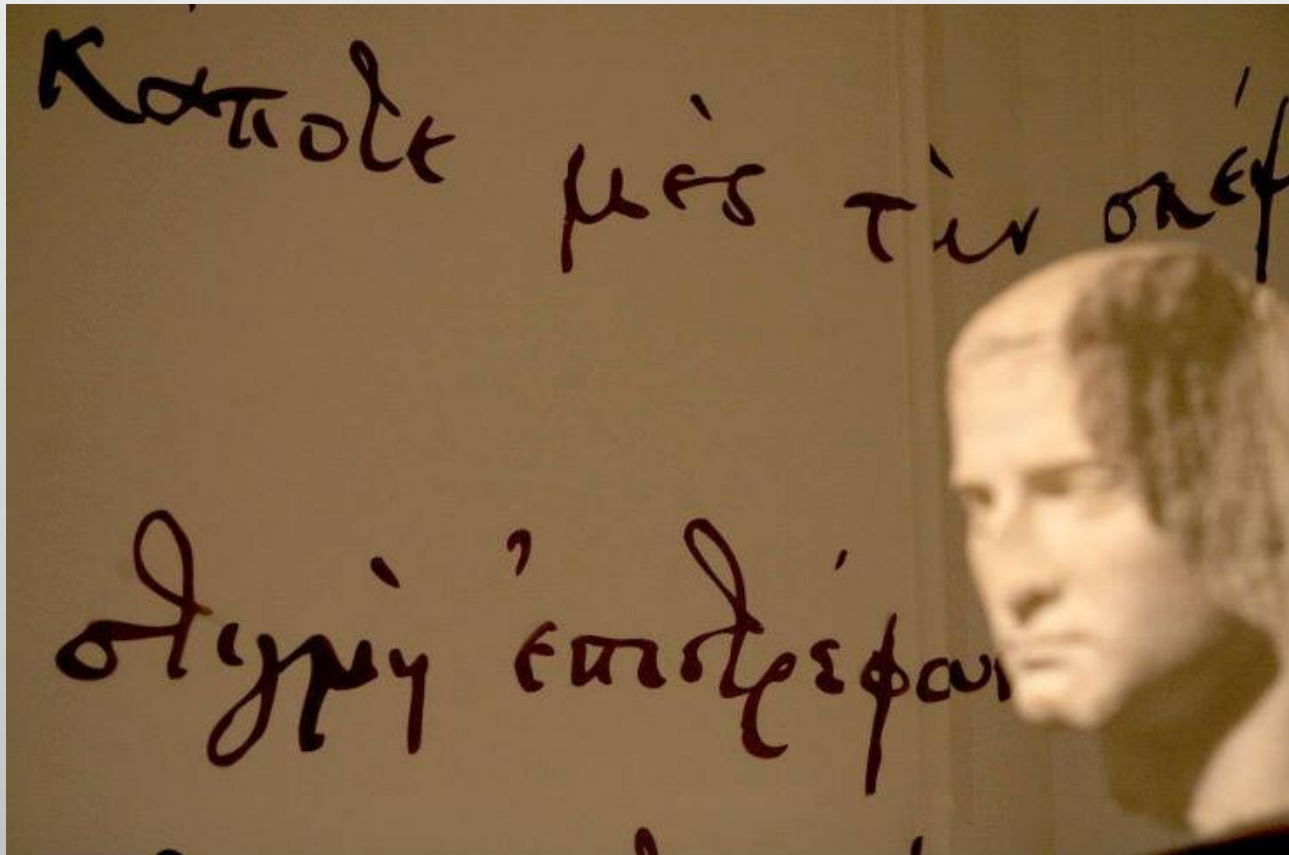 Κάποτε μὲς τὴν σκέψ
στιγμὴ ἐπιστρέφουν